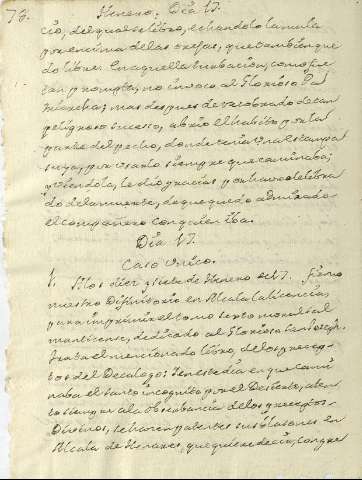 78. Henero. Dia 17.
cio, del qual se libro, echandolo la mula
por encima de las orejas, que tambien que
do libre. En aquella turbacion, como fue
tan prompta, no invoco al Glorioso Pa
triarcha; mas despues de recobrado de tan
peligroso sucesso, abrio el habito por la
parte del pecho, donde tenia una Estampa
suya, por usarlo siempre que caminaba;
y viendola, le dio gracias por haverle libra
do de la muerte, de que quedo admirado
el compañero con quien iba.
Dia 17.
Caso Unico.
A los diez y siete de Henero de 17. firmo
nuestro Difinitorio en Alcala la licencia,
para imprimir el tomo sexto moral sal
manticense, dedicado al Glorioso San Joseph.
trata el mencionado libro, de los precep
tos del Decalogo: en este dia en que cami
naba el Santo incognito por el Desierto, aten
to siempre a la observancia de los preceptos
Divinos, se hacen patentes sus blasones en
Alcala de Henares, que quiere decir,